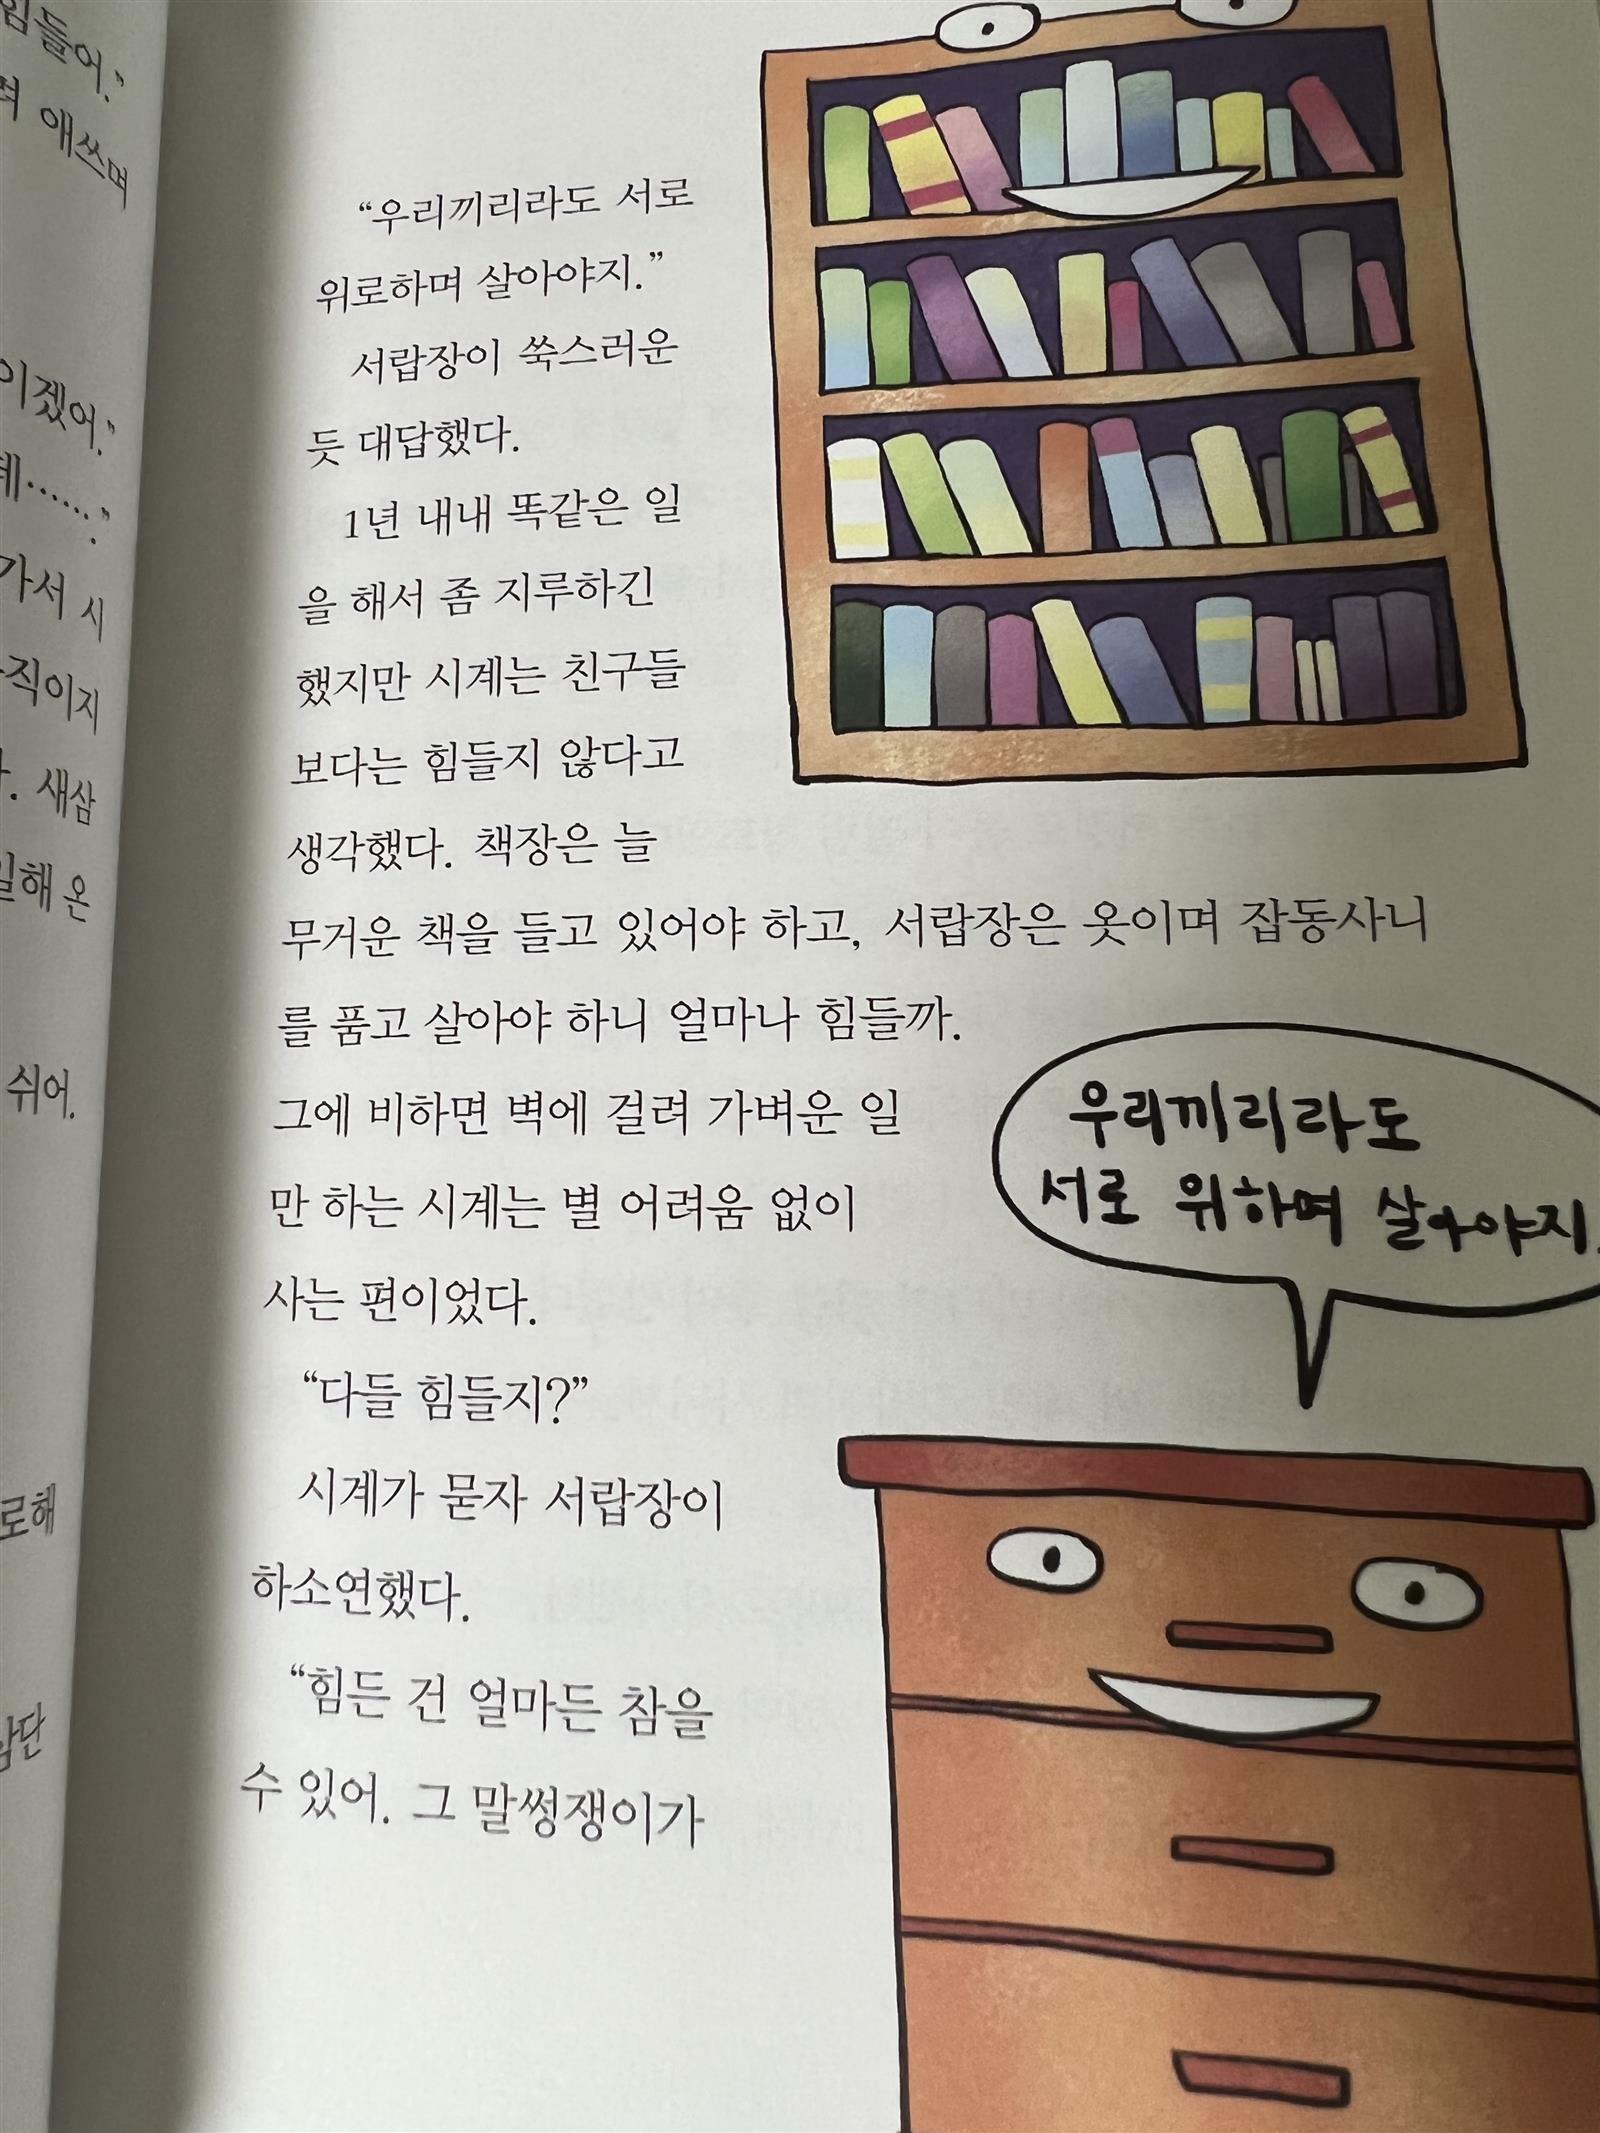 힘들어.”
애쓰며
이겠어.”
데…….”
가서 시
직이지
. 새삼
일해 온
쉬어.
로해
“우리끼리라도 서로
위로하며 살아야지.”
서랍장이 쑥스러운
듯 대답했다.
1년 내내 똑같은 일
을 해서 좀 지루하긴
했지만 시계는 친구들
보다는 힘들지 않다고
생각했다. 책장은 늘
무거운 책을 들고 있어야 하고, 서랍장은 옷이며 잡동사니
를 품고 살아야 하니 얼마나 힘들까.
그에 비하면 벽에 걸려 가벼운 일
만 하는 시계는 별 어려움 없이
사는 편이었다.
“다들 힘들지?”
시계가 묻자 서랍장이
하소연했다.
“힘든 건 얼마든 참을
수 있어. 그 말썽쟁이가
우리끼리라도
서로 위하며 살아야지.